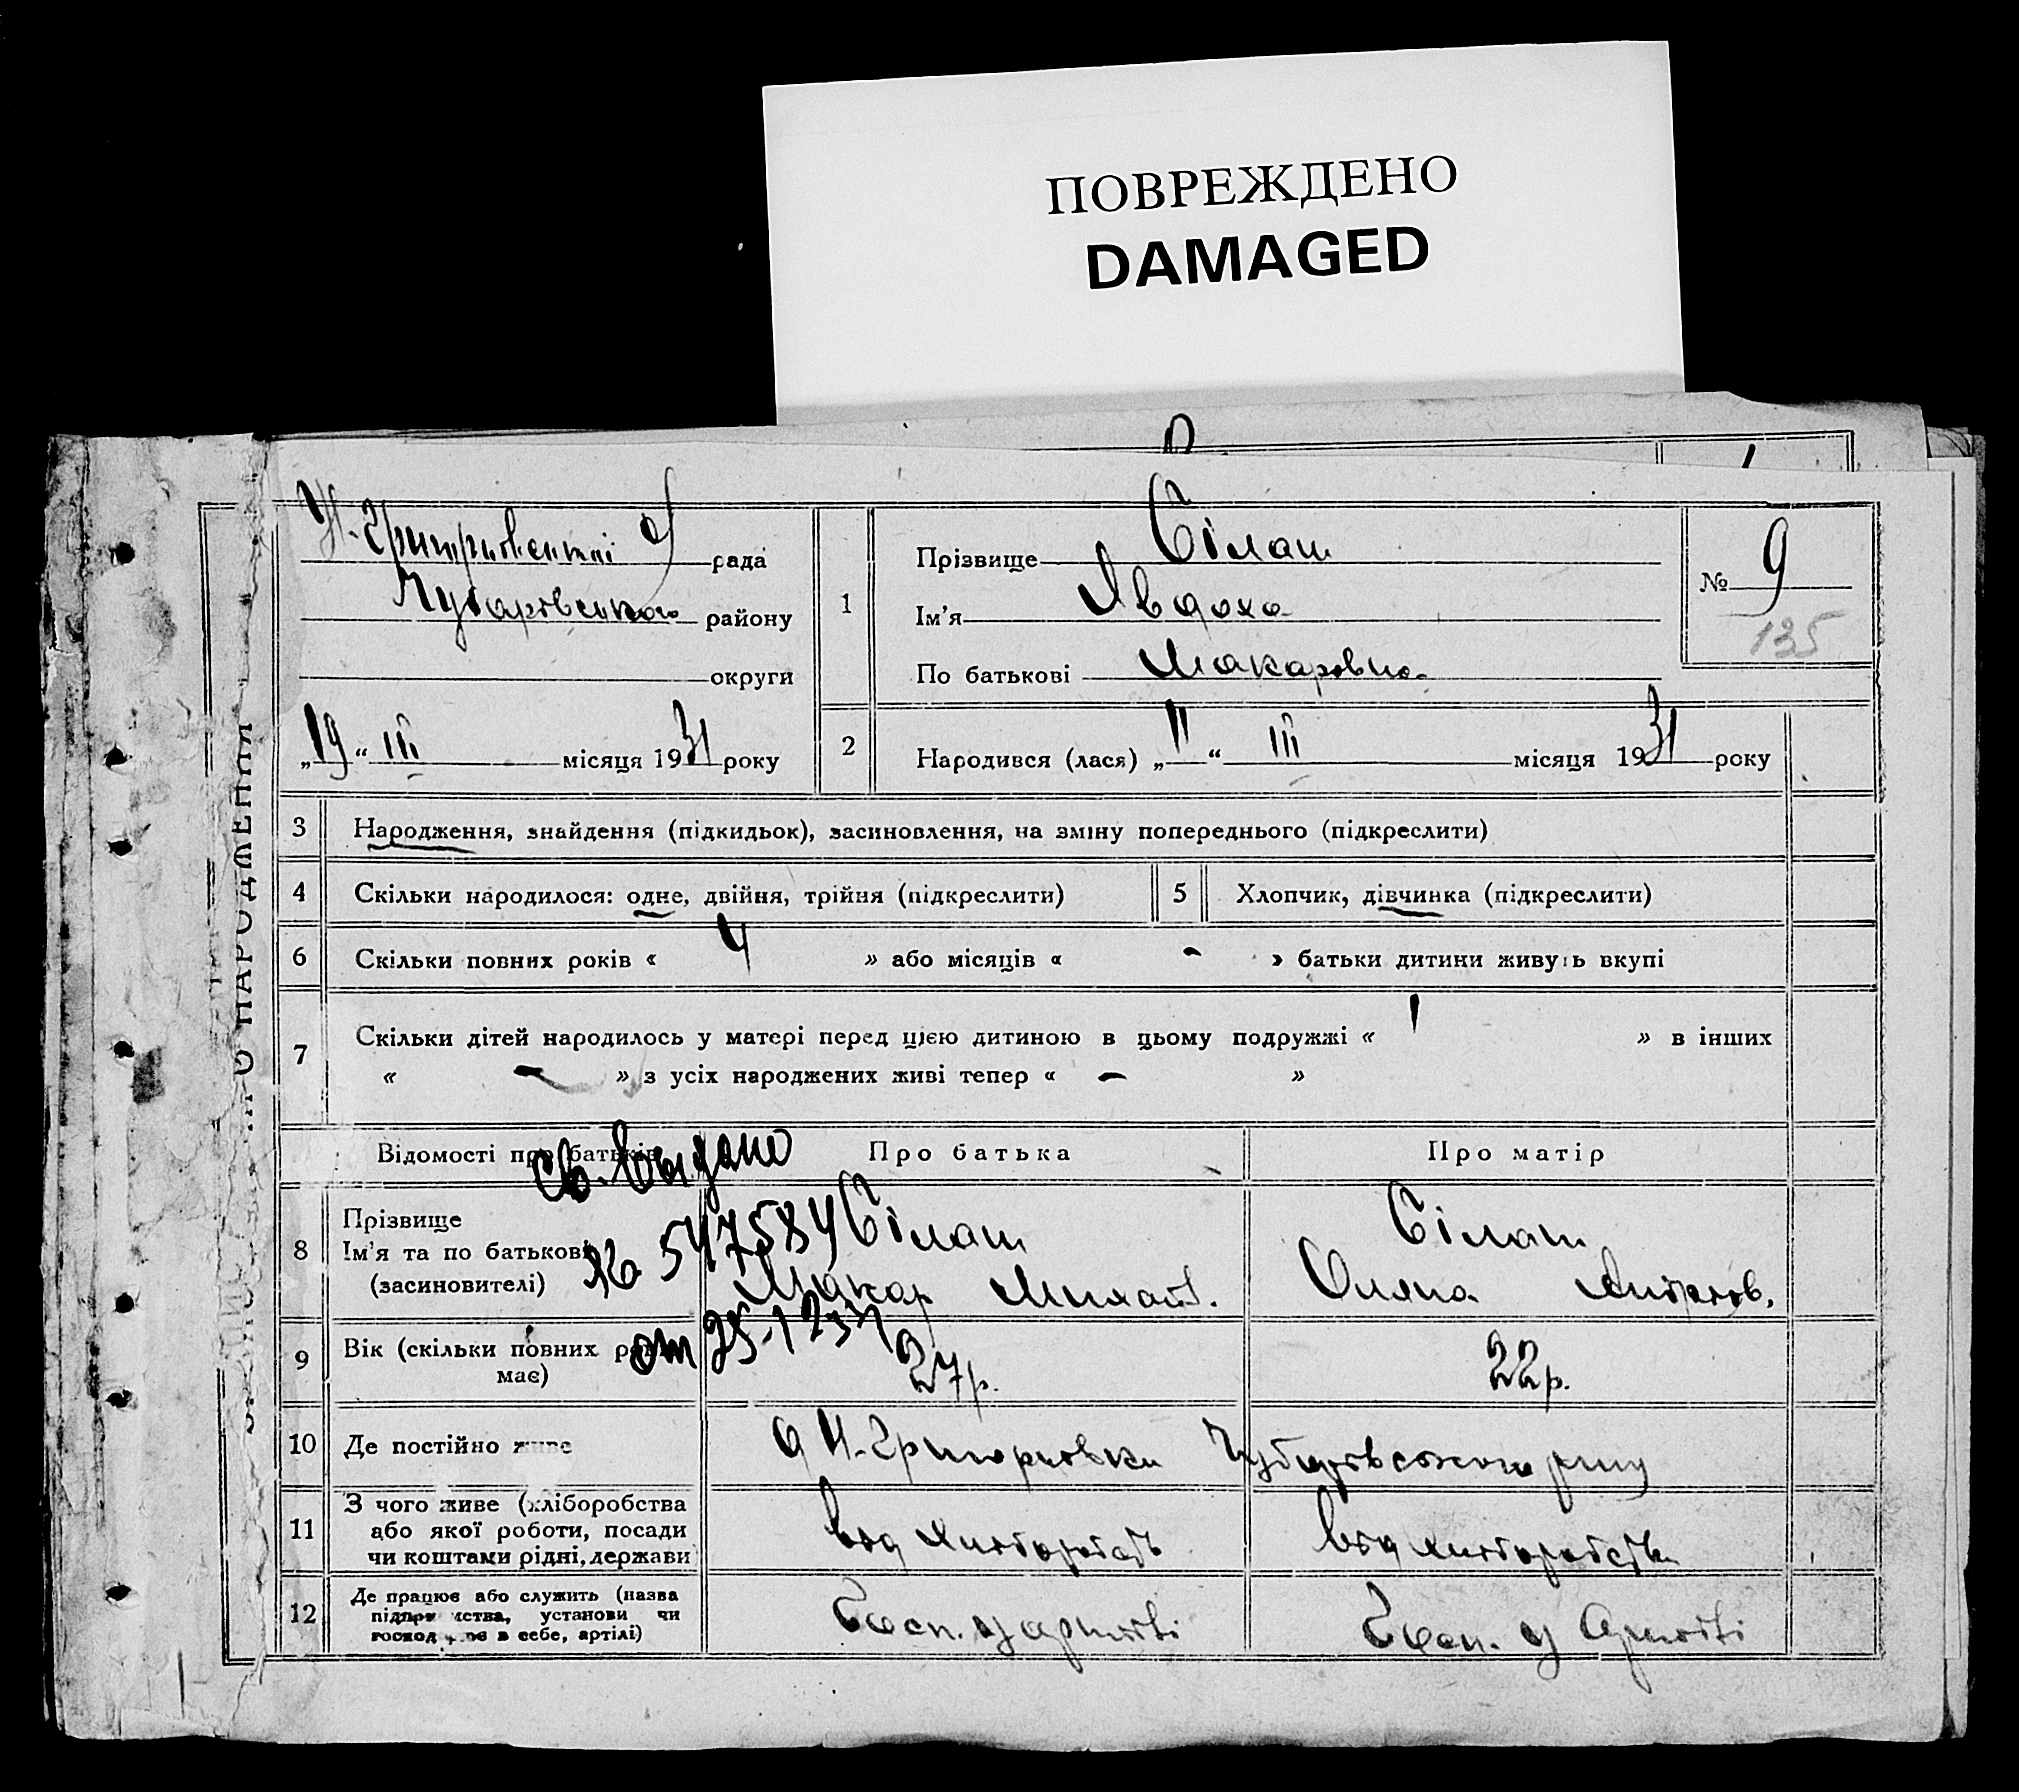 ПОВРЕЖДЕНО
DAMAGED
рада
Чубарівського району
округи
„19“ III місяця 1931 року
1
Прізвище Сілаш
Ім'я Явдоха
По батькові Макаровна
№ 9
135
2
Народився (лася) „11“ III місяця 1931 року
О НАРОДЖЕННЯ
3 Народження, знайдення (підкидьок), засиновлення, на зміну попереднього (підкреслити)
4 Скільки народилося: одне, двійня, трійня (підкреслити)
5 Хлопчик, дівчинка (підкреслити)
6 Скільки повних років « 4 » або місяців « - » батьки дитини живуть вкупі
7 Скільки дітей народилось у матері перед цією дитиною в цьому подружжі « 1 » в інших
« - » з усіх народжених живі тепер « - »
Відомості про батьків Про батька Про матір
Св. выдано
№ 547584
от 25-1
8 Прізвище
Ім'я та по батькові
(засиновителі)
Сілаш
Макар Михайл.
Сілаш
9 Вік (скільки повних років
має)
27р.
22р.
10 Де постійно живе
Чубарівського р-ну
11 З чого живе (хліборобства
або якої роботи, посади
чи коштами рідні, держави
від хліборобств
від хліборобства
12 Де працює або служить (назва
підприємства, установи чи
господарює в себе, артілі)
Госп. у артілі
Госп. у Артілі